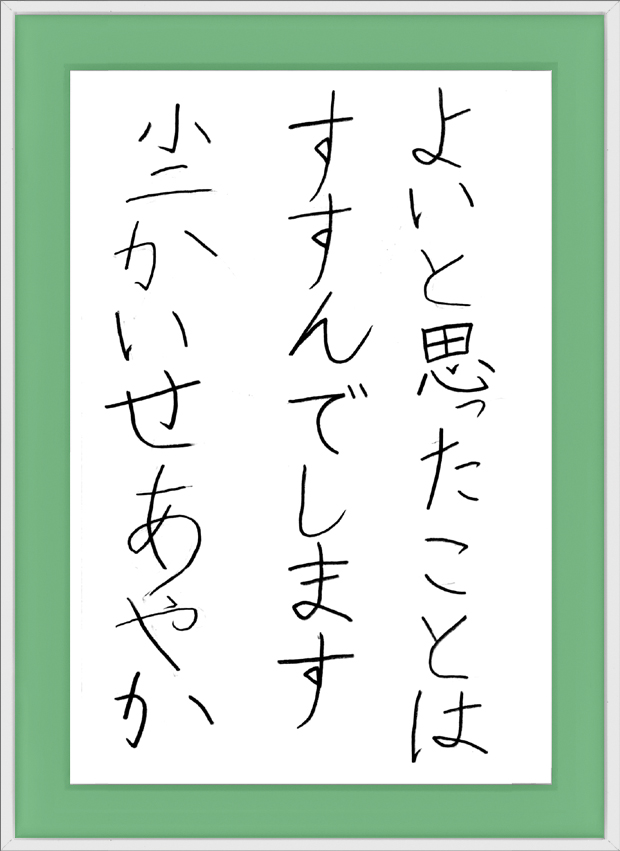 よいと思ったことは
すすんでします
小二かいせあやか